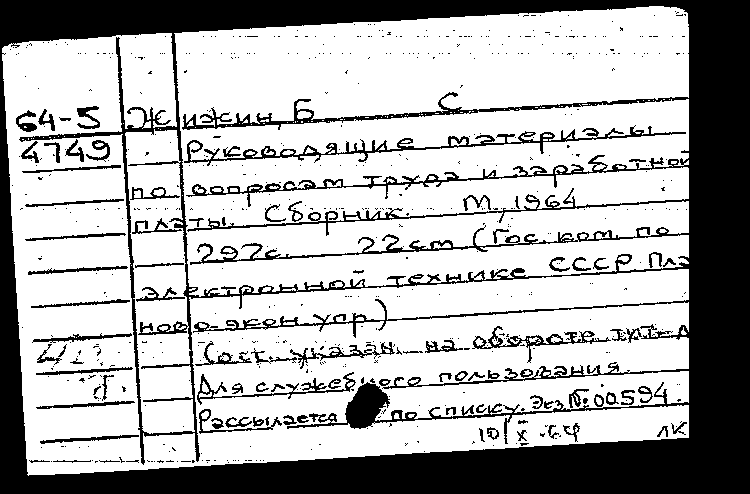 64-5 Жижин, Б С
4749 Руководящие материалы
по вопросам труда и заработной
платы. Сборник. М., 1964
297с. 22cm (Гос. ком. по
электронной технике СССР Пла
ново-экон. упр.)
Сост. указан. на обороте тит. л
Для служебного пользования.
Рассылается по списку. Экз. № 00594.
10/X-64 ЛК